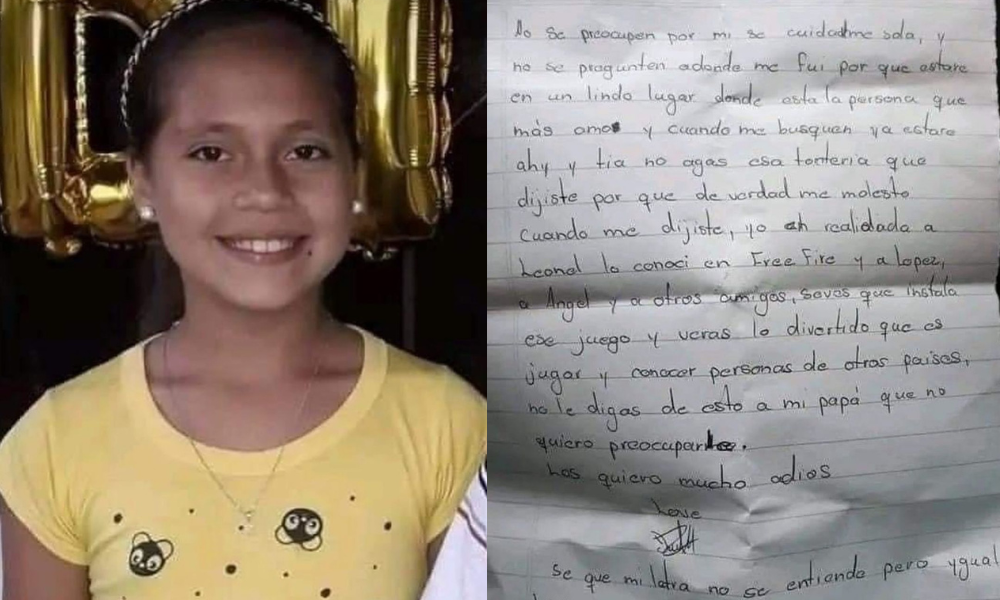 No se preocupen por mi se cuidarme sola, y
no se pregunten adonde me fui por que estare
en un lindo lugar donde esta la persona que
más amo y cuando me busquen ya estare
ahy y tia no agas esa tonteria que
dijiste por que de verdad me molesto
cuando me dijiste, yo en realidada a
Leonel lo conoci en Free Fire y a Lopez,
a Angel y a otros amigos, saves que instala
ese juego y veras lo divertido que es
jugar y conocer personas de otros paises,
no le digas de esto a mi papá que no
quiero preocuparle.
Los quiero mucho adios
Love
Se que mi letra no se entiende pero ygual